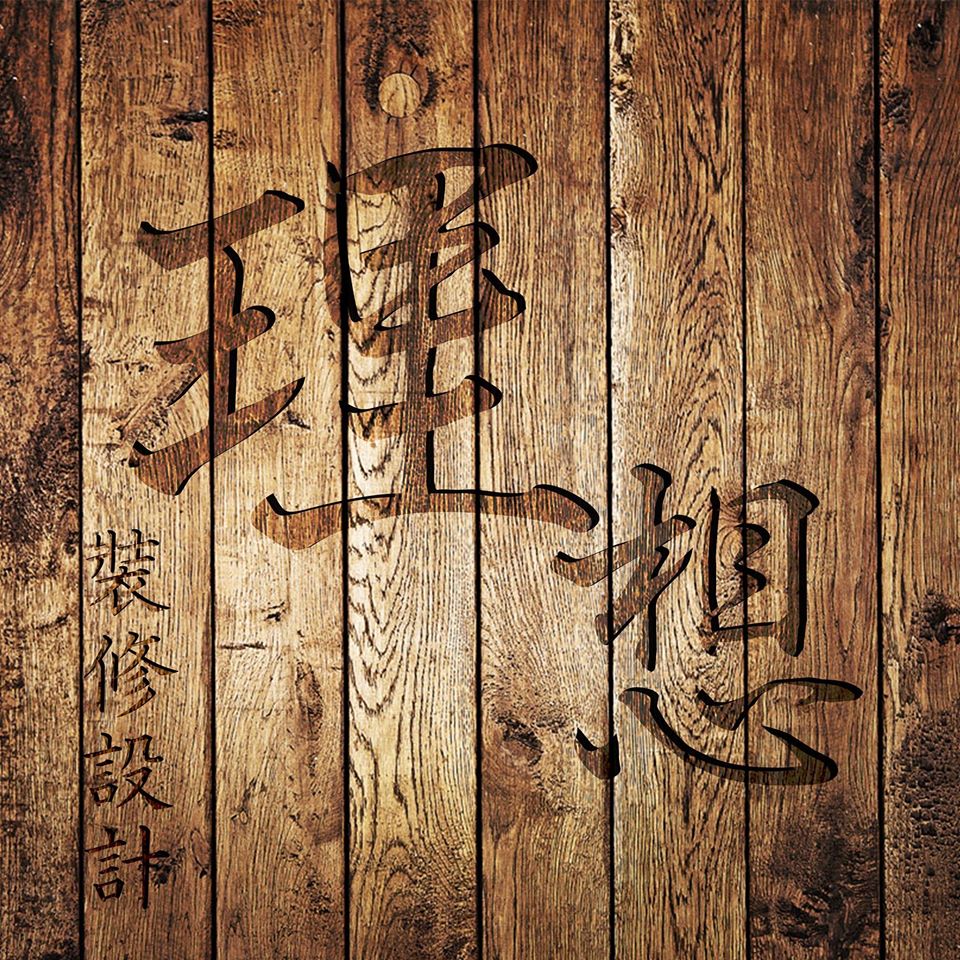 理想
裝修設計